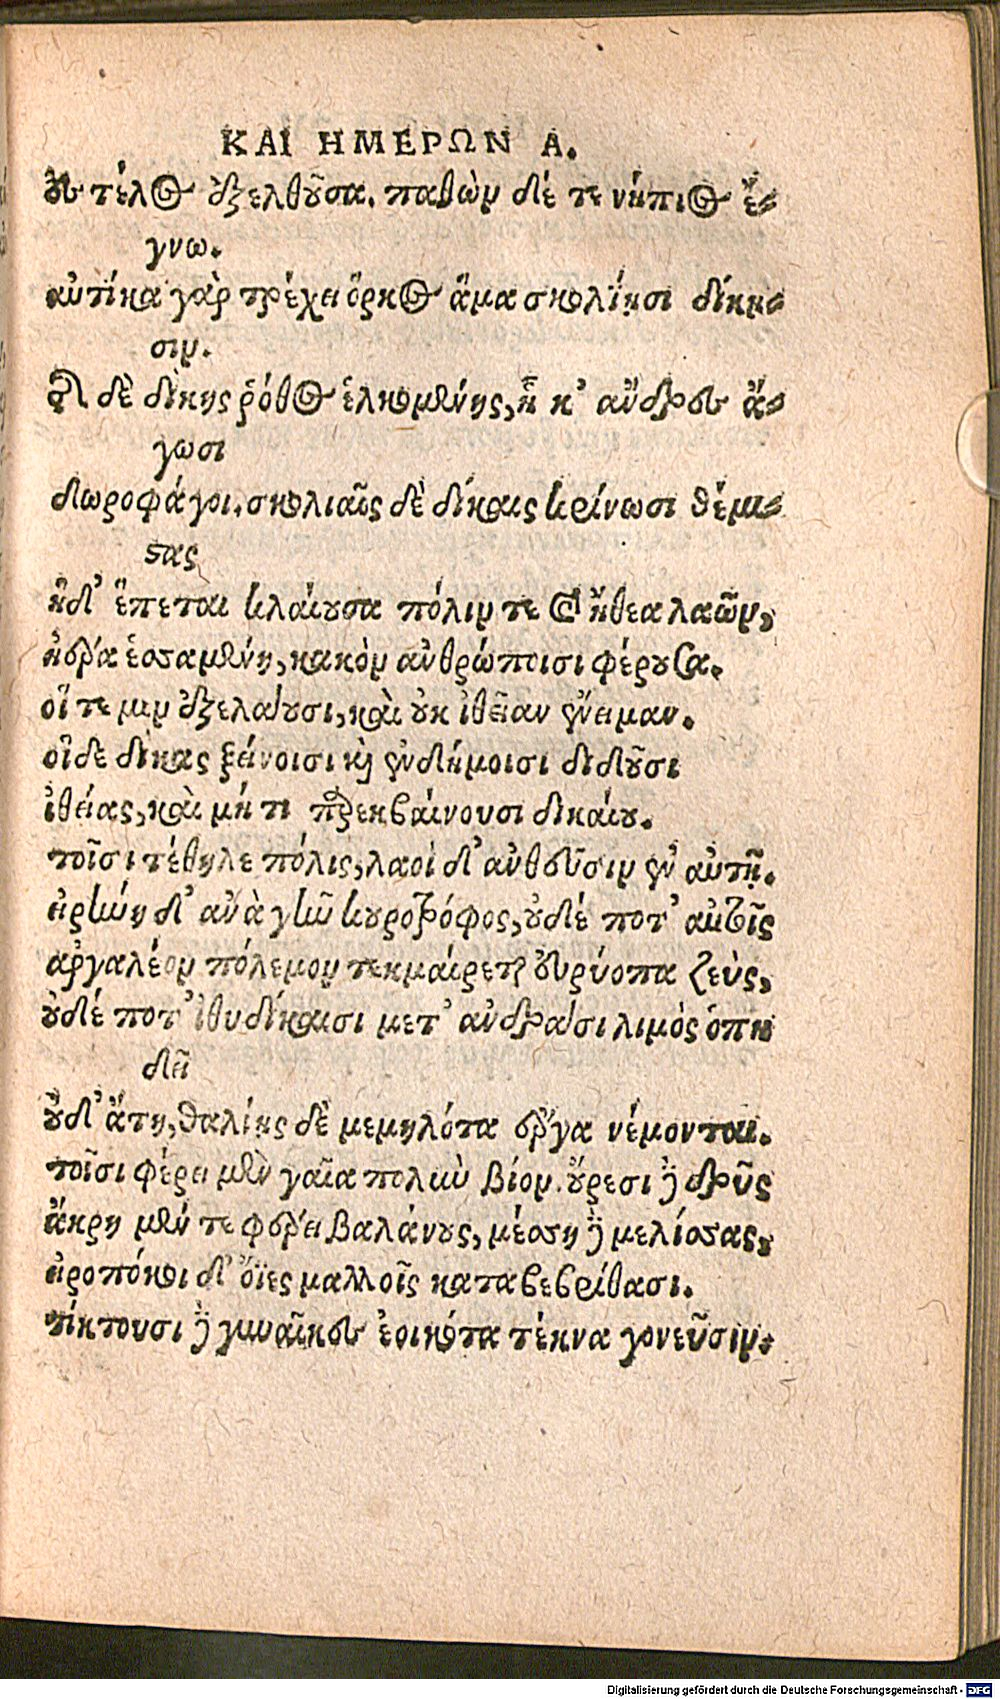 ΚΑΙ ΗΜΕΡΩΝ Α.
ἐς τέλος ἐξελθοῦσα. παθὼν δέ τε νήπιος ἔ-
γνω.
αὐτίκα γὰρ τρέχει ὅρκος ἅμα σκολιῇσι δίκῃ-
σιν.
τῆς δὲ δίκης ῥόθος ἑλκομένης, ᾗ κ' ἄνδρες ἄ-
γωσι
δωροφάγοι, σκολιαῖς δὲ δίκαις κρίνωσι θέμι-
στας
ἡδ' ἕπεται κλαίουσα πόλιν τε καὶ ἤθεα λαῶν,
ἠέρα ἑσσαμένη, κακὸν ἀνθρώποισι φέρουσα.
οἵ τε μιν ἐξελάουσι, καὶ οὐκ ἰθεῖαν ἔνειμαν.
οἳ δε δίκας ξείνοισι καὶ ἐνδήμοισι διδοῦσι
ἰθείας, καὶ μή τι παρεκβαίνουσι δικαίου.
τοῖσι τέθηλε πόλις, λαοὶ δ' ἀνθεῦσιν ἐν αὐτῇ.
εἰρήνη δ' ἀνὰ γῆν κουροτρόφος, οὐδέ ποτ' αὐτοῖς
ἀργαλέον πόλεμον τεκμαίρεται εὐρύοπα ζεύς,
οὐδέ ποτ' ἰθυδίκαισι μετ' ἀνδράσι λιμὸς ὀπη
δεῖ
οὐδ' ἄτη, θαλίης δὲ μεμηλότα ἔργα νέμονται.
τοῖσι φέρει μὲν γαῖα πολὺν βίον. οὔρεσι δὲ δρῦς
ἄκρη μέν τε φέρει βαλάνους, μέσση δὲ μελίσσας,
εἰροπόκοι δ' ὄϊες μαλλοῖς καταβεβρίθασι.
τίκτουσι δὲ γυναῖκες ἐοικότα τέκνα γονεῦσιν·